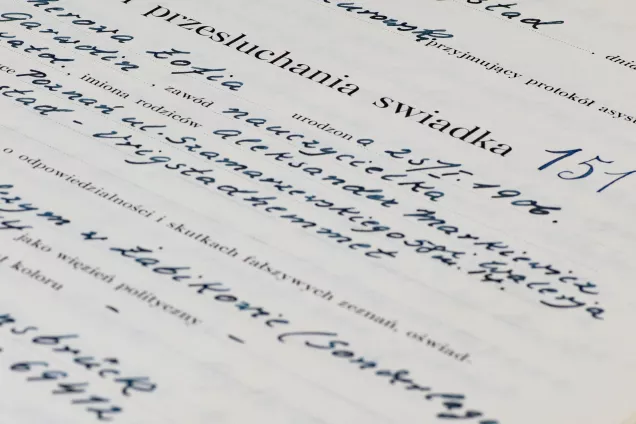 stad dnia
przyjmujący protokół asyst
przesłuchania swiadka 151
Zofia urodzona 23/I. 1906.
Garwolin zawód nauczycielka
imiona rodziców Aleksander Markiewicz
Poznań ul. Szamarzewskiego
stad - Vrigstadhemmet
o odpowiedzialności i skutkach fałszywych zeznań, oświad.
w Żabikowie (Sonderlage
jako więzień polityczny -
koloru -
69412